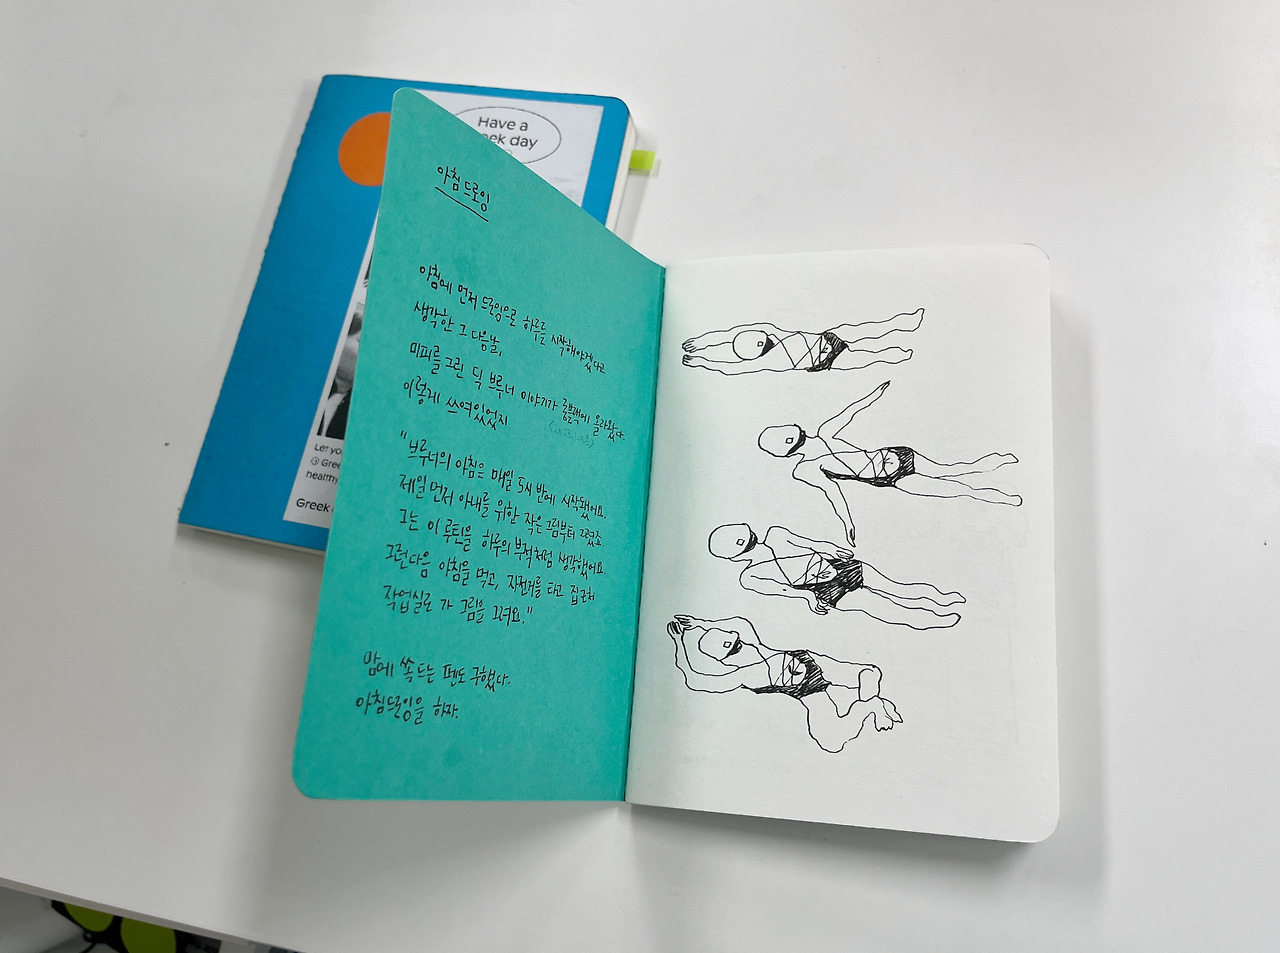 Have a
eek day
아침 드로잉
아침에 먼저 드로잉으로 하루를 시작해야겠다고
생각한 그 다음날,
미피를 그린 딕 브루너 이야기가 롱블랙에 올라왔다.
이렇게 쓰여있었지
"브루너의 아침은 매일 5시 반에 시작됐어요.
제일 먼저 아내를 위한 작은 그림부터 그렸죠.
그는 이 루틴을 하루의 부적처럼 생각했어요.
그런다음 아침을 먹고, 자전거를 타고 집근처
작업실로 가 그림을 그려요."
맘에 쏙 드는 펜도 구했다.
아침드로잉을 하자.
Let yo
Gree
healthy
Greek